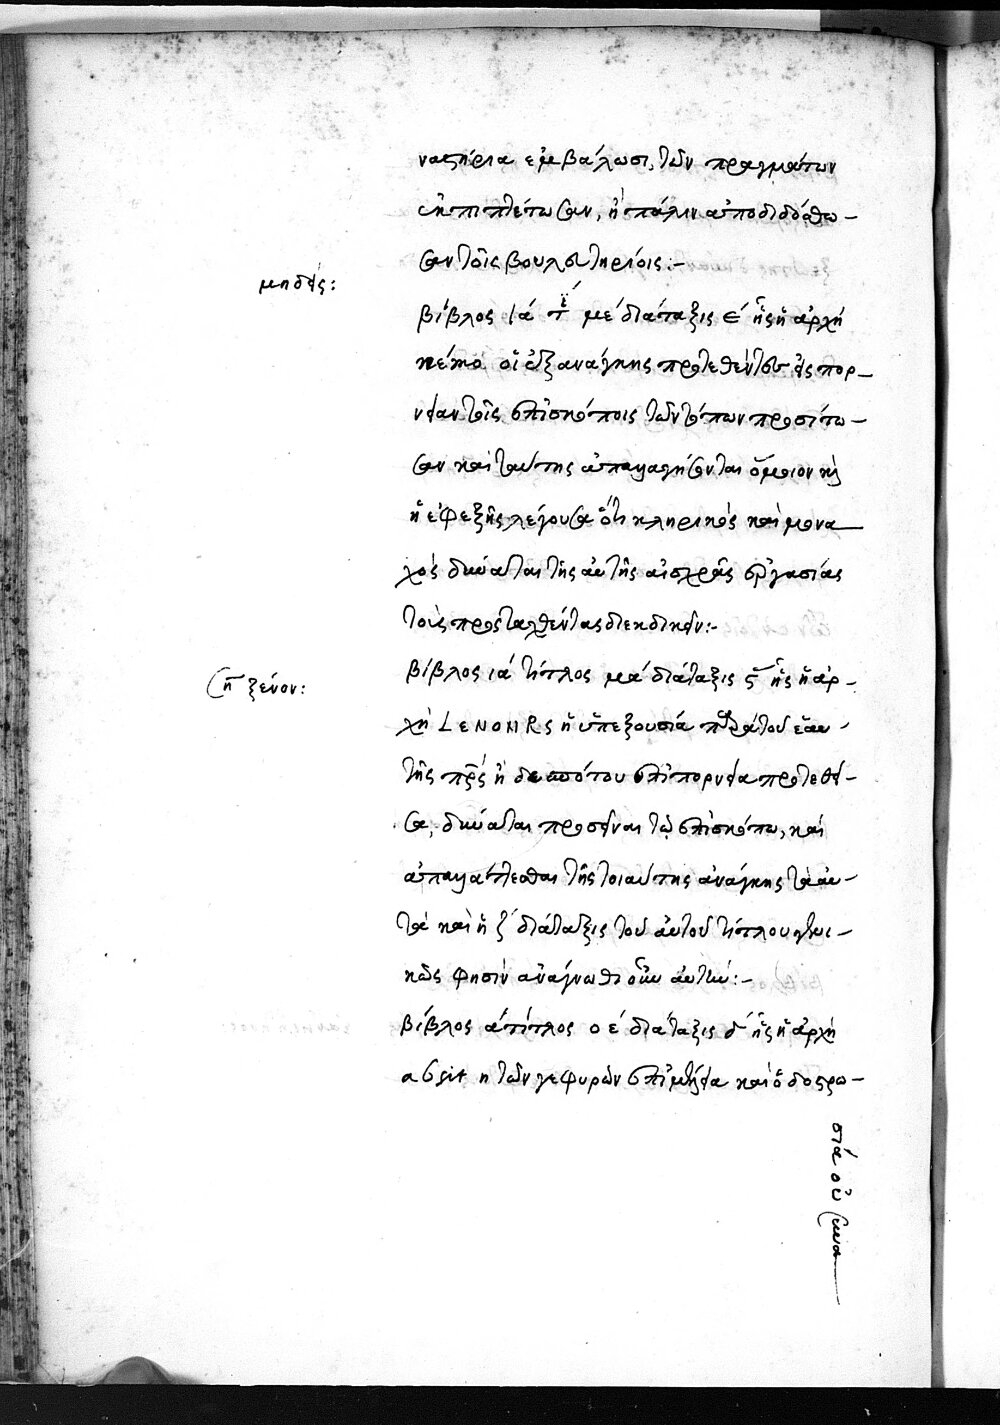 ναστήρια ἐμβάλωσι, τῶν πραγμάτων
ἐκπιπτέτωσαν, ἢ πάλιν ἀποδιδόσθω-
σαν τοῖς βουλευτηρίοις:-
μηδείς:
βίβλος ια τί με διάταξις ἧς ἡ ἀρχὴ
οἱ ἐξ ἀνάγκης προτεθέντες εἰς πορ-
νείαν τοῖς ἐπισκόποις τῶν τόπων προσίτω-
σαν καὶ ταύτης ἀπαλλαγήσονται ὅμοιον καὶ
ἡ ἐφεξῆς λέγουσα ὅτι κληρικὸς καὶ μονα
χὸς δύναται τῆς αὐτῆς αἰσχρᾶς ἐργασίας
τοὺς προσταχθέντας διεκδικεῖν:-
ξένον:
βίβλος ιά τίτλος μα διάταξις ϛ ἧς ἡ ἀρ-
χὴ LENONRS ἡ ὑπεξουσία παρὰ τοῦ ἑαυ-
τῆς πρς ἢ δεσπότου ἐπὶ πορνεία προτεθεῖ-
σα, δύναται προσιέναι τῷ ἐπισκόπω, καὶ
ἀπαλλάττεσθαι τῆς τοιαύτης ἀνάγκης τὰ αὐ-
τὰ καὶ ἡ ζ διάταξις τοῦ αὐτοῦ τίτλου γενι-
κῶς φησὶν ἀνάγνωθι οὖν αὐτήν:-
βίβλος ά τίτλος ο έ διάταξις δ ἧς ἡ ἀρχὴ
absit ἡ τῶν γεφυρῶν ἐπιμέλεια καὶ ὁδοστρω-
σία οὐ